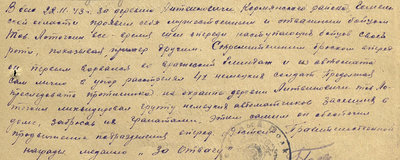 В бою 28.11.43. за деревню Литвиновичи Кормянского района, Гомель-
ской области проявил себя мужественным и отважным бойцом
Тов. все время шел впереди наступающих бойцов своей
роты, показывая пример другим. Стремительным броском вперед
он первым ворвался во вражеский блиндаж и из автомата
сам лично в упор расстрелял 4х немецких солдат. Продолжая
преследовать противника на окраине деревни Литвиновичи тов.
ликвидировал группу немецких автоматчиков засевших в
доме, забросав их гранатами. Этим самым он обеспечил
продвижение подразделения вперед. Достоин Правительственной
награды медалью "За Отвагу"